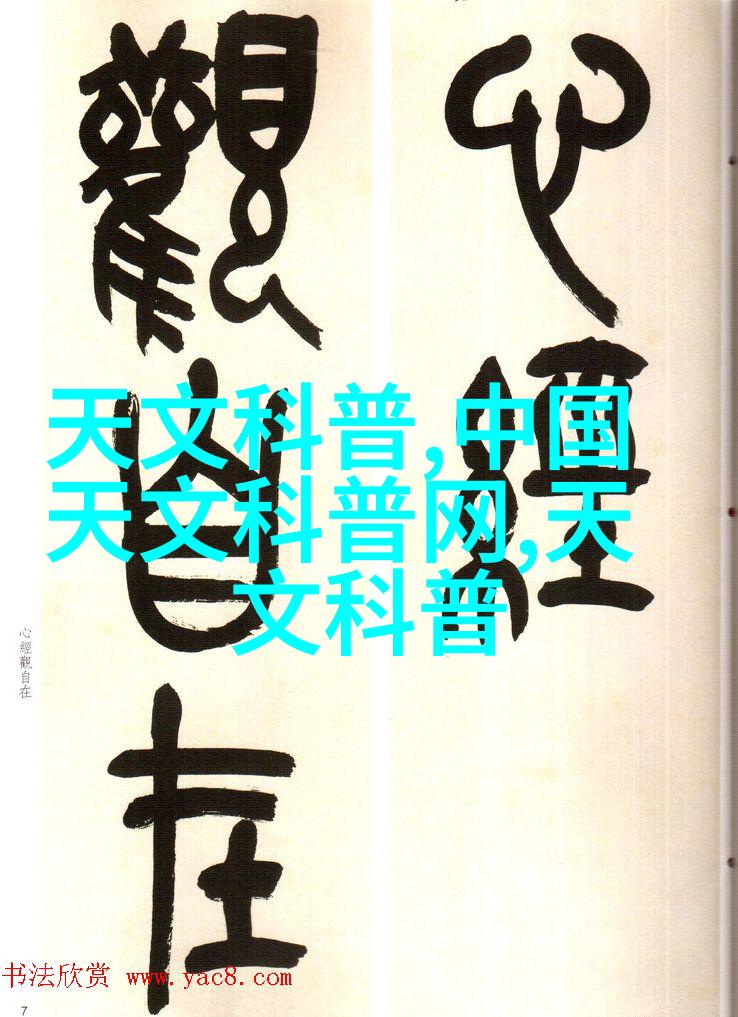 心經
觀自在
天文科普,中国
天文科普网,天
文科普
心經觀自在
书法欣赏 www.yac8.com
7